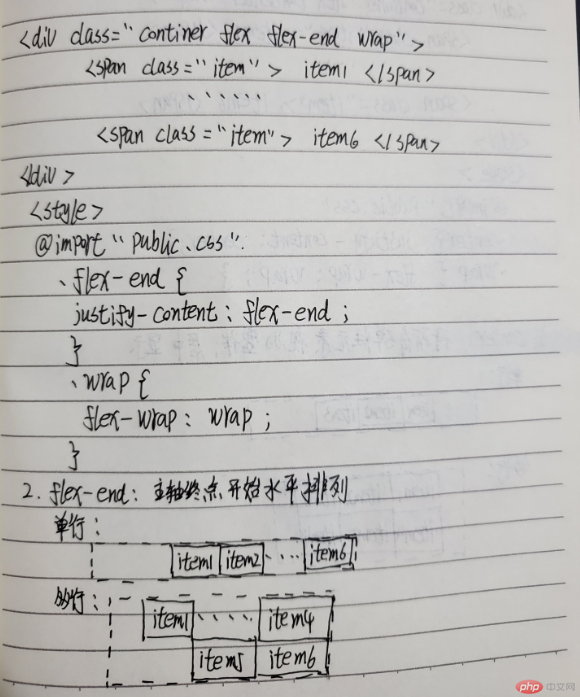 <div class="continer flex flex-end wrap">
<span class="item"> item1 </span>
......
<span class="item"> item6 </span>
</div>
<style>
@import "public.css".
.flex-end {
justify-content: flex-end;
}
.wrap {
flex-wrap: wrap;
}
2. flex-end: 主轴终点开始水平排列
单行:
item1 item2 ... item6
多行:
item1 .... item4
item5 item6
php 中文网